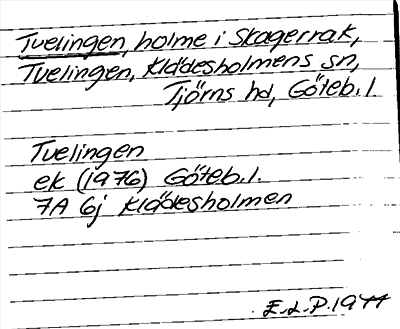 Tvelingen, holme i Skagerrak,
Tvelingen, Klädesholmens sn,
Tjörns hd, Göteb. l
Tvelingen
ek (1976) Göteb. l.
7A 6j Klädesholmen
E.L.P. 1977